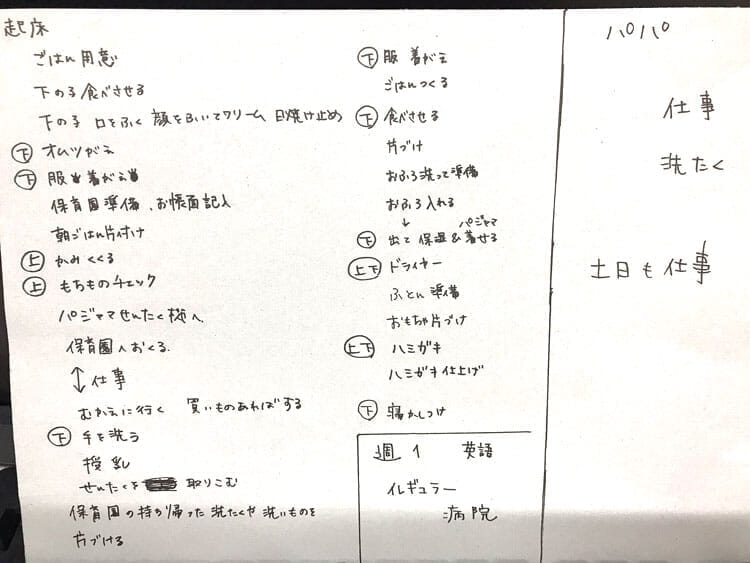 起床
ごはん用意
下の子 食べさせる
下の子 口をふく 顔をふいてクリーム 日焼け止め
下 オムツがえ
下 服 着がえ
保育園準備、お帳面記入
朝ごはん片付け
上 かみくくる
上 もちものチェック
パジャマせんたく機へ
保育園へおくる.
↕ 仕事
むかえに行く 買いものあればする
下 手を洗う
授乳
せんたくを 取りこむ
保育園の持ち帰った洗たくや洗いものを
片づける
下 服 着がえ
ごはんつくる
下 食べさせる
片づけ
おふろ洗って準備
おふろ入れる
↓ パジャマ
下 出て 保湿&着せる
上下 ドライヤー
ふとん準備
おもちゃ片づけ
上下 ハミガキ
ハミガキ仕上げ
下 寝かしつけ
週1 英語
イレギュラー
病院
パパ
仕事
洗たく
土日も仕事